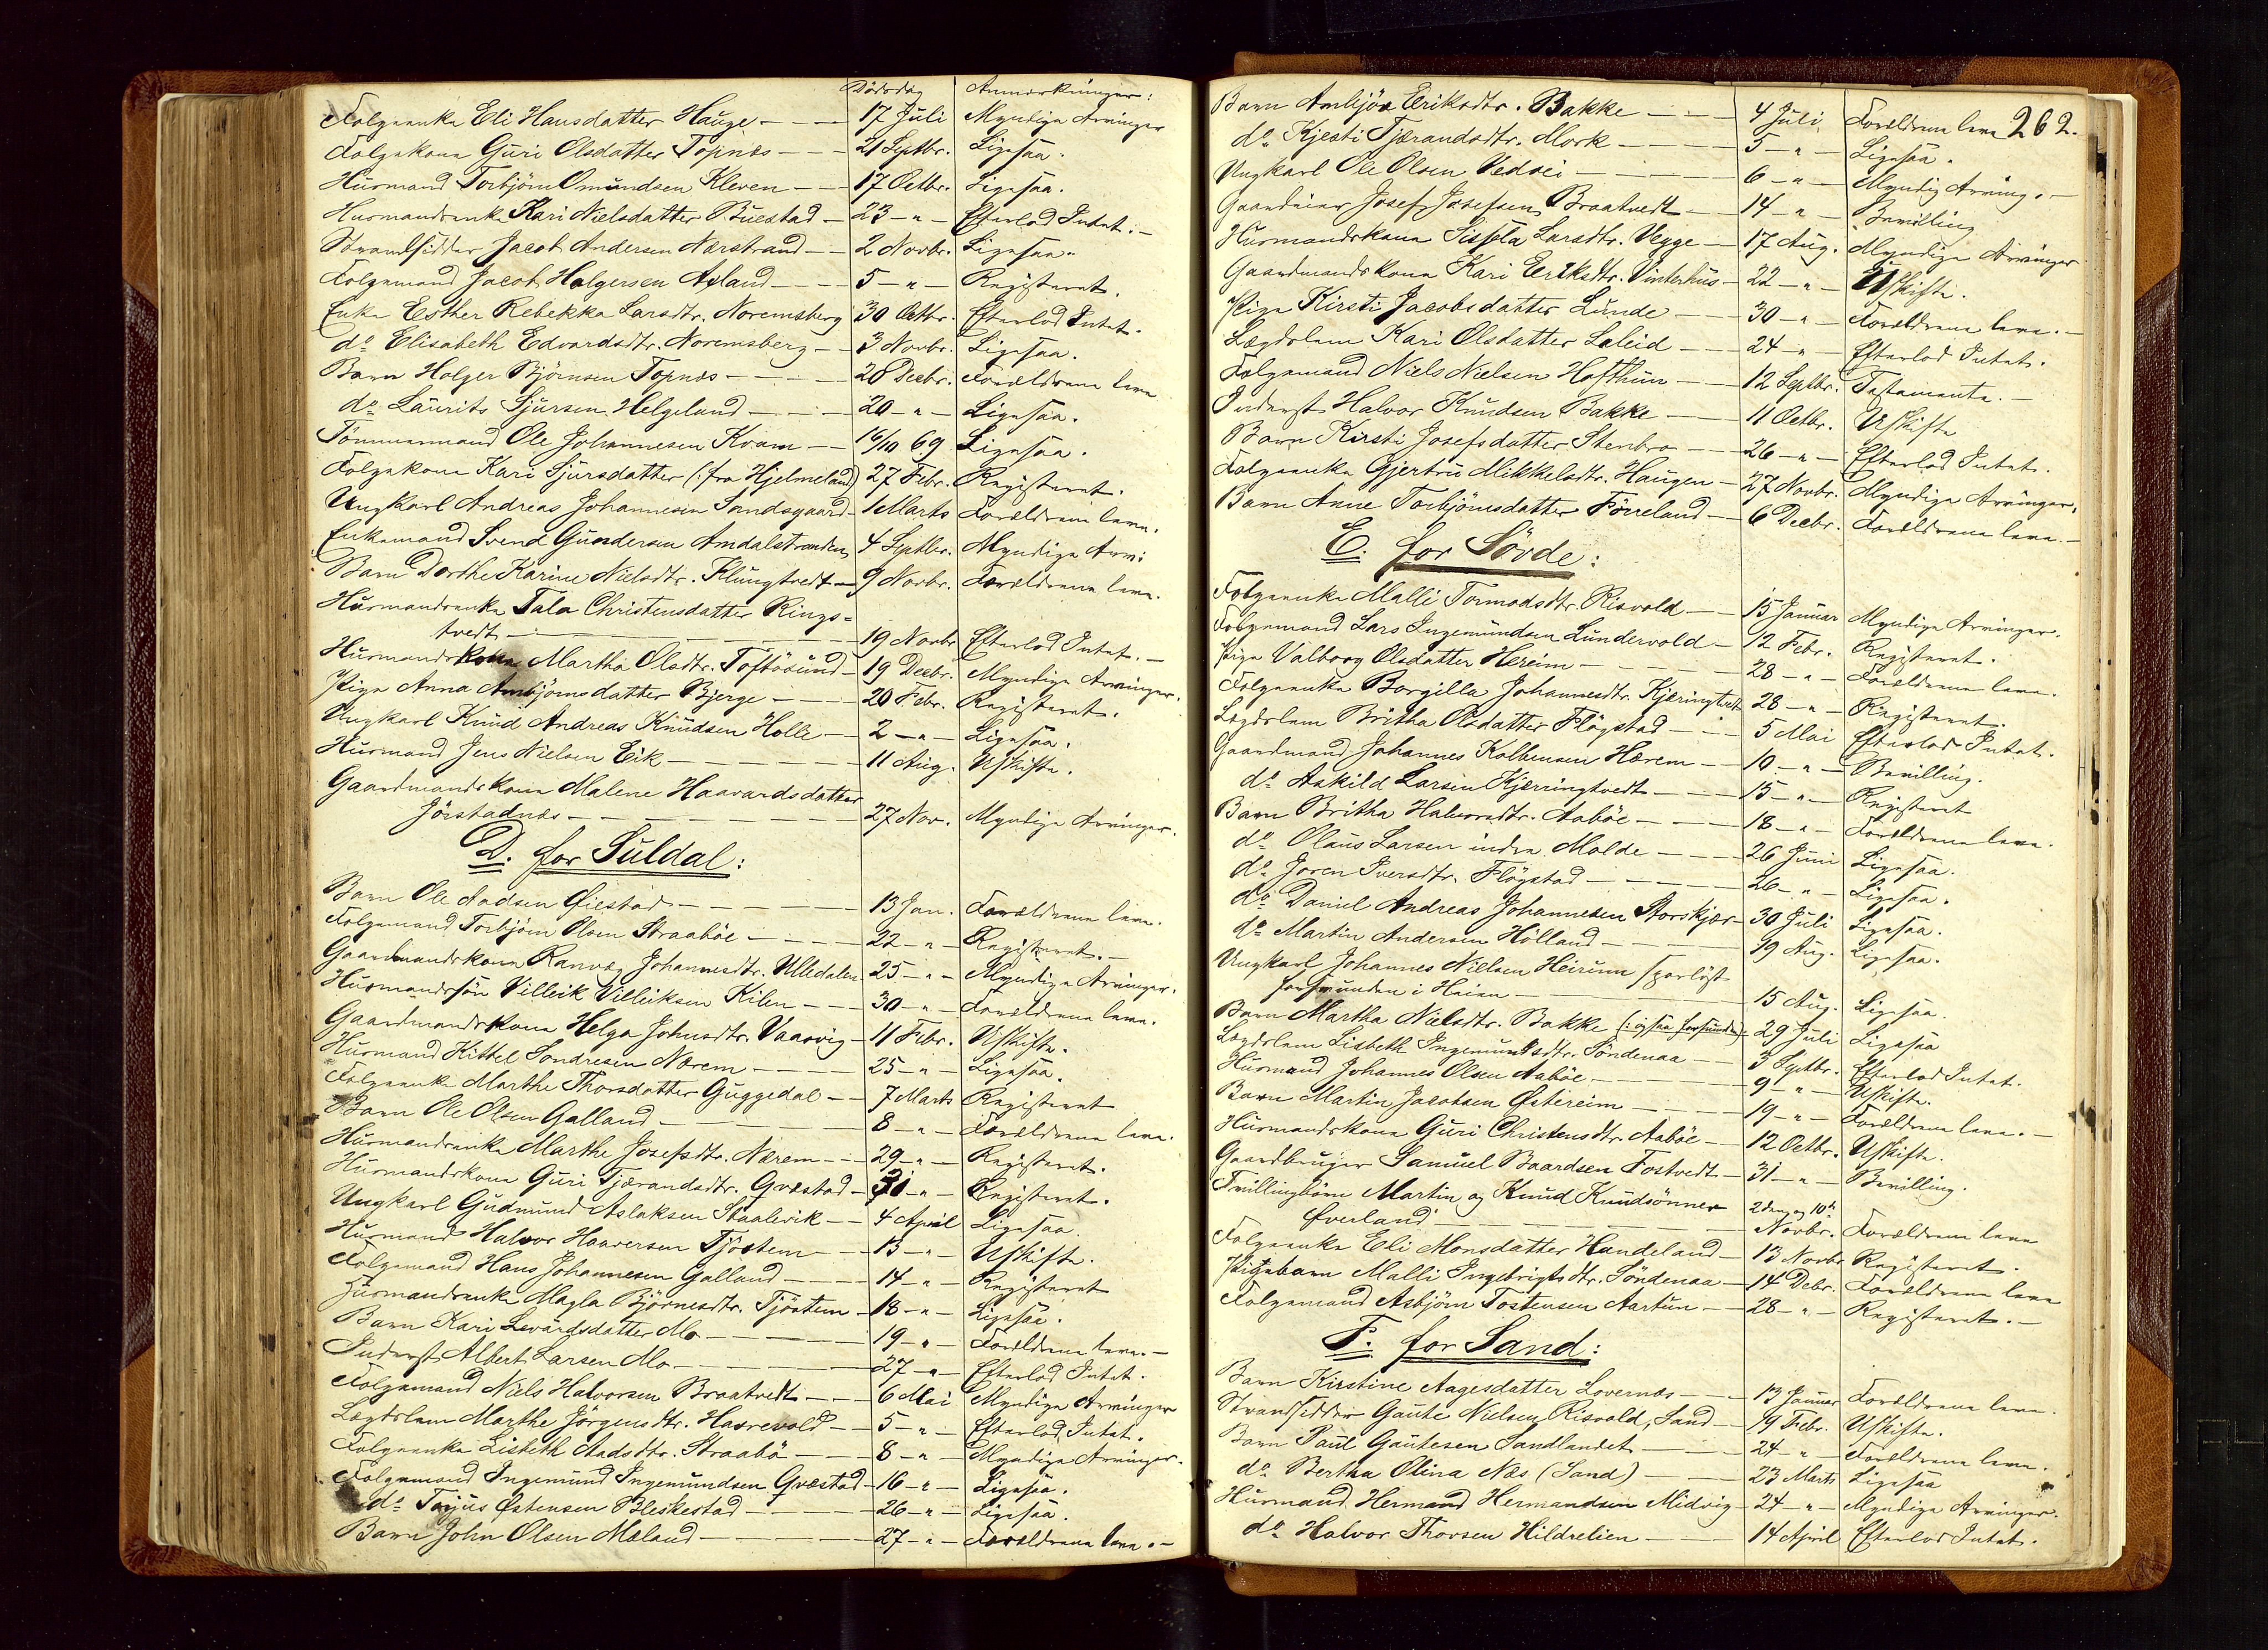 Dödsdag Anmærkninger:
Folgeenke Eli Hansdatter Hauge — 17 Juli Myndige Arvinger
Folgekone Guri Olsdatter Topnæs — 21 Septbr. Ligesaa.
Husmand Torbjörn Omundsen Kleven — 17 Octbr. Ligesaa.
Husmandsenke Kari Nielsdatter Buestad — 23 — " — Efterlod Intet. —
Strandsidder Jacob Andersen Nærstrand — 2 Novbr. Ligesaa.
Folgemand Jacob Holgersen Axland — 5 — " — Registeret.
Enke Esther Rebekka Larsdtr. Noremsberg 30 Octbr. Efterlod Intet.
do Elisabeth Edvardsdtr. Noremsberg — 3 Novbr. Ligesaa.
Barn Holger Björnsen Topnæs — 28 Decbr. Forældrene leve
do Laurits Sjursen Helgeland — 20 — " — Ligesaa.
Tömmermand Ole Johannesen Kvam — 16/10 69 Ligesaa.
Folgekone Kari Sjursdatter (: fra Hjelmeland) 27 Febr. Registeret.
Ungkarl Andreas Johannesen Sandsgaard — 1 Marts Forældrene leve.
Enkemand Svend Gundersen Amdalstranden 4 Septbr. Myndige Arv:
Barn Dorthe Karine Nielsdtr. Klungtvedt — 9 Novbr. Forældrene leve.
Husmandsenke Tala Christensdatter Rings=
tvedt — 19 Novbr. Efterlod Intet. —
Husmandskone Martha Olsdtr. Toftösund — 19 Decbr. Myndige Arvinger.
Pige Anna Asbjörnsdatter Bjerge — 20 Febr. Registeret.
Ungkarl Knud Andreas Knudsen Holle — 2 — " — Ligesaa.
Husmand Jens Nielsen Eik — 11 Aug. Uskifte.
Gaardmandskone Malene Haavardsdatter
Jörstadnæs — 27 Nov. Myndige Arvinger.
D. for Suldal:
Barn Ole Aadsen Öiestad — 13 Jan. Forældrene leve.
Folgemand Torbjörn Olsen Straaböe — 22 — " — Registeret. —
Gaardmandskone Ranveg Johannesdtr. Ulledalen 25 — " — Myndige Arvinger.
Husmandssön Villeik Villeiksen Kilen — 30 — " — Forældrene leve.
Gaardmandskone Helga Johnsdtr. Vaarvig — 11 Febr. Uskifte.
Husmand Kittel Sondresen Nærem — 25 — " — Ligesaa.
Folgeenke Marthe Thorsdatter Guggedal — 7 Marts Registeret
Barn Ole Olsen Galland — 8 — " — Forældrene leve.
Husmandsenke Marthe Josefsdtr. Nærem — 29 — " — Registeret.
Husmandskone Guri Tjærandsdtr. Gvæstad — 31 — " — Registeret.
Ungkarl Gudmund Aslaksen Staalevik — 4 April Ligesaa.
Husmand Halvor Haaversen Tjöstem — 13 — " — Uskifte.
Folgemand Hans Johannesen Galland — 14 — " — Registeret
Husmandsenke Magla Björnesdtr. Tjöstem — 18 — " — Ligesaa.
Barn Kari Levardsdatter Mo — 19 — " — Forældrene leve. —
Inderst Albert Larsen Mo — 27 — " — Efterlod Intet.
Folgemand Niels Halvorsen Braatvedt — 6 Mai Myndige Arvinger
Lægdslem Marthe Jörgensdtr. Havrevold — 5 — " — Efterlod Intet.
Folgeenke Lisbeth Aadsdtr. Straabö — 8 — " — Myndige Arvinger.
Folgemand Ingemund Ingemundsen Gvæstad — 16 — " — Ligesaa.
do Tarjus Östensen Bleskestad — 26 — " — Ligesaa.
Barn John Olsen Mæland — 27 — " — Forældrene leve. —
262.
Barn Ambjör Eriksdtr. Bakke — 4 Juli Forældrene leve
do Kjesti Tjærandsdtr. Mork — 5 — " — Ligesaa.
Ungkarl Ole Olsen Vedvei — 6 — " — Myndig Arving. —
Gaardeier Josef Josefsen Braatvedt — 14 — " — Bevilling
Husmandskone Sissela Larsdtr. Vegge — 17 Aug. Myndige Arvinger
Gaardmandskone Kari Eriksdtr. Vinterhus — 22 — " — Uskifte.
Pige Kirsti Jacobsdatter Lunde — 30 — " — Forældrene leve. —
Lægdslem Kari Olsdatter Laleid — 24 — " — Efterlod Intet.
Folgemand Niels Nielsen Hofthun — 12 Septbr. Testamente. —
Inderst Halvor Knudsen Bakke — 11 Octbr. Uskifte
Barn Kirsti Josefsdatter Stenbro — 26 — " — Efterlod Intet.
Folgeenke Gjertru Mikkelsdtr. Haugen — 27 Novbr. Myndige Arvinger.
Barn Anne Torbjörnsdatter Förreland — 6 Decbr. Forældrene leve. —
E. for Sövde:
Folgeenke Malli Tormodsdtr. Risvold — 15 Januar Myndige Arvinger.
Folgemand Lars Ingemundsen Lundervold — 12 Febr. Registeret.
Pige Valborg Olsdatter Hereim — 28 — " — Forældrene leve.
Folgeenke Borgilla Johannesdtr. Kjæringtvet 28 — " — Registeret.
Lægdslem Britha Olsdatter Flögstad — 5 Mai Efterlod Intet.
Gaardmand Johannes Kolbensen Hærem — 10 — " — Bevilling.
do Askild Larsen Kjerringtvedt — 15 — " — Registeret
Barn Britha Halvorsdtr. Aaböe — 18 — " — Forældrene leve.
do Olaus Larsen indre Molde — 26 Juni Ligesaa.
do Joren Iversdtr. Flögstad — 26 — " — Ligesaa.
do Daniel Andreas Johannesen Storskjær — 30 Juli Ligesaa.
do Martin Andersen Hölland — 19 Aug. Ligesaa.
Ungkarl Johannes Nielsen Heirum sporlöst
forsvunden i Heien — 15 Aug. Ligesaa.
Barn Martha Nielsdtr. Bakke (: ogsaa forsvunden) — 29 Juli Ligesaa
Lægdslem Lisbeth Ingemundsdtr. Söndenaa — 3 Septbr. Efterlod Intet.
Husmand Johannes Olsen Aaböe — 9 — " — Uskifte.
Barn Martin Jacobsen Östereim — 19 — " — Forældrene leve. —
Husmandskone Guri Christensdtr. Aaböe — 12 Octbr. Uskifte.
Gaardbruger Samuel Baardsen Fostvedt — 31 — " — Bevilling.
Tvillingbörn Martin og Knud Knudsönner 2den og 10de
Överland — Novbr. Forældrene leve
Folgeenke Eli Monsdatter Handeland — 13 Novbr Registeret.
Pigebarn Malli Ingebrigtsdtr. Söndenaa — 14 Debr. Forældrene leve
Folgemand Asbjörn Tostensen Aartun — 28 — " — Registeret. —
F. for Sand:
Barn Kirstine Aagesdatter Lovernæs — 13 Januar Forældrene leve.
Strandsidder Gaute Nielsen Risvold, Sand — 19 Febr. Uskifte.
Barn Paul Gautesen Sandlandet — 24 " — Forældrene leve.
do Bertha Olina Næs (Sand) — 23 Marts Ligesaa
Husmand Hermand Hermandsen Midvig — 24 — " — Myndige Arvinger.
do Halvor Thorsen Hildrelien — 14 April Efterlod Intet.